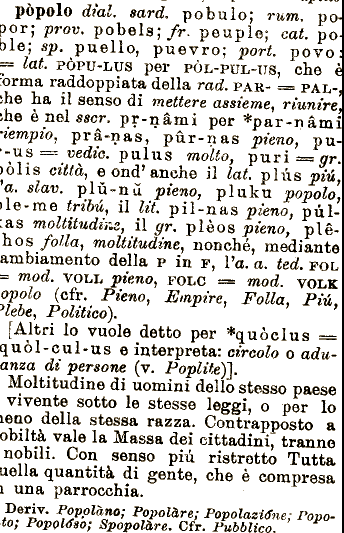 pòpolo dial. sard. pobulo; rum. po-
por; prov. pobels; fr. peuple; cat. po-
ble; sp. puello, puevro; port. povo:
= lat. PÒPU-LUS per PÒL-PUL-US, che è
forma raddoppiata della rad. PAR- = PAL-,
che ha il senso di mettere assieme, riunire,
che è nel sscr. pṛ-ṇâmi per *par-nâmi
riempio, prâ-ṇas, pûr-ṇas pieno, pu-
r-us = vedic. pulus molto, puri = gr.
pòlis città, e ond'anche il lat. plús piú,
l'a. slav. plŭ-nŭ pieno, pluku popolo,
ple-me tribú, il lit. pil-nas pieno, púl-
kas moltitudine, il gr. plèos pieno, plê-
thos folla, moltitudine, nonché, mediante
cambiamento della P in F, l'a. a. ted. FOL
= mod. VOLL pieno, FOLC = mod. VOLK
popolo (cfr. Pieno, Empire, Folla, Piú,
Plebe, Politico).
[Altri lo vuole detto per *quòclus =
quòl-cul-us e interpreta: circolo o adu-
nanza di persone (v. Poplite)].
Moltitudine di uomini dello stesso paese
vivente sotto le stesse leggi, o per lo
meno della stessa razza. Contrapposto a
nobiltà vale la Massa dei cittadini, tranne
nobili. Con senso piú ristretto Tutta
quella quantità di gente, che è compresa
in una parrocchia.
Deriv. Popolàno; Popolàre; Popolazióne; Popo-
to; Popolóso; Spopolàre. Cfr. Pubblico.